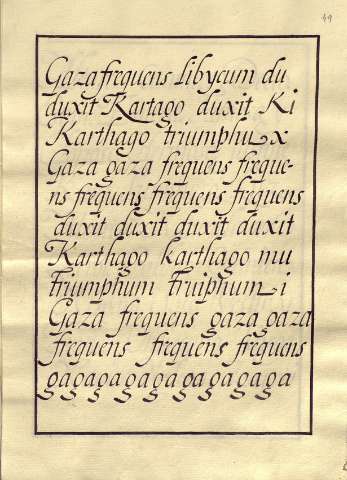 49
Gaza frequens Libycum du
duxit Kartago duxit Ki
Karthago triumphu x
Gaza gaza frequens freque-
ns frequens frequens frequens
duxit duxit duxit duxit
Karthago karthago mu
Triumphum truiphum i
Gaza frequens gaza gaza
frequens frequens frequens
gagagagagagagagaga